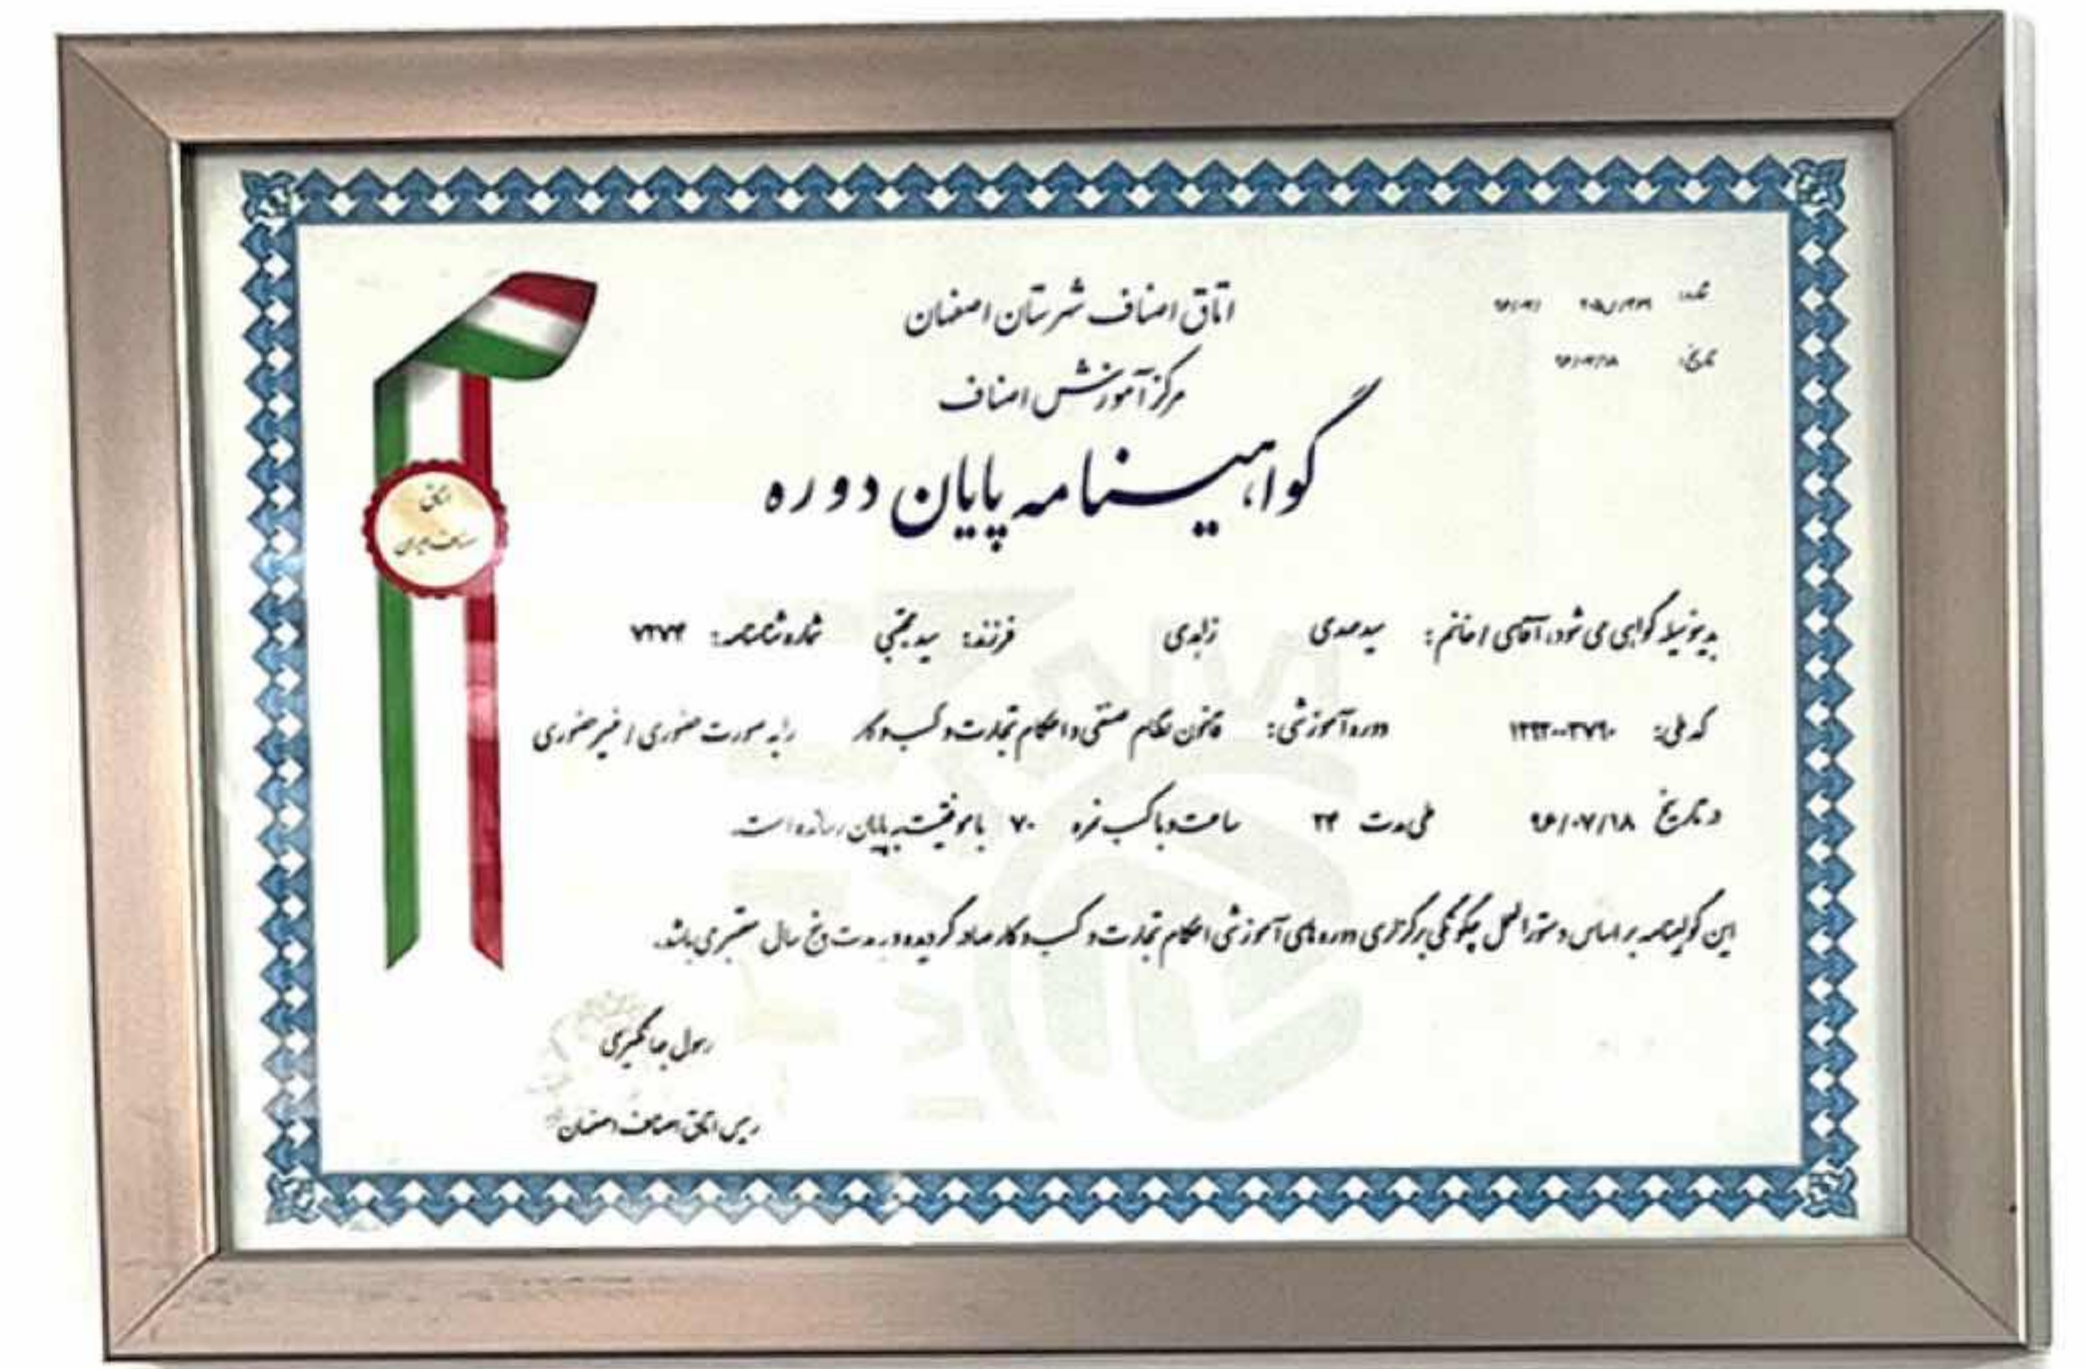 اتاق اصناف شهرستان اصفهان
مرکز آموزش اصناف
گواهینامه پایان دوره
شماره:
تاریخ:
اتاق
اصناف ایران
بدینوسیله گواهی می شود، آقای / خانم: سیدمهدی زاهدی فرزند: سیدمجتبی شماره شناسنامه: ۷۲۷۴
کد ملی: دوره آموزشی: قانون نظام صنفی و احکام تجارت و کسب و کار را به صورت حضوری / غیر حضوری
در تاریخ ۹۶/۰۷/۱۸ طی مدت ۲۴ ساعت و با کسب نمره ۷۰ با موفقیت به پایان رسانده است.
این گواهینامه بر اساس دستورالعمل چگونگی برگزاری دوره های آموزشی احکام تجارت و کسب و کار صادر گردیده و به مدت پنج سال معتبر می باشد.
رسول جهانگیری
رییس اتاق اصناف اصفهان